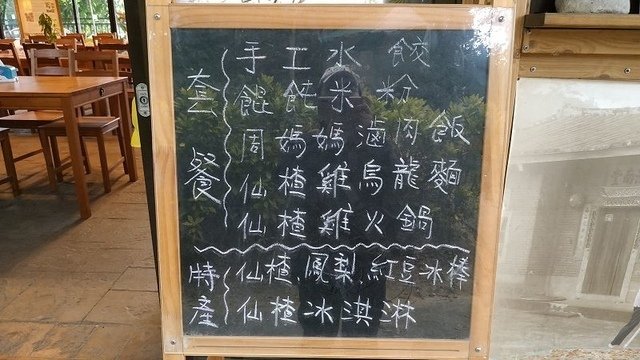 套餐
手工水餃
餛飩米粉
周媽媽滷肉飯
仙楂雞烏龍麵
仙楂雞火鍋
特產
仙楂.鳳梨.紅豆冰棒
仙楂冰淇淋